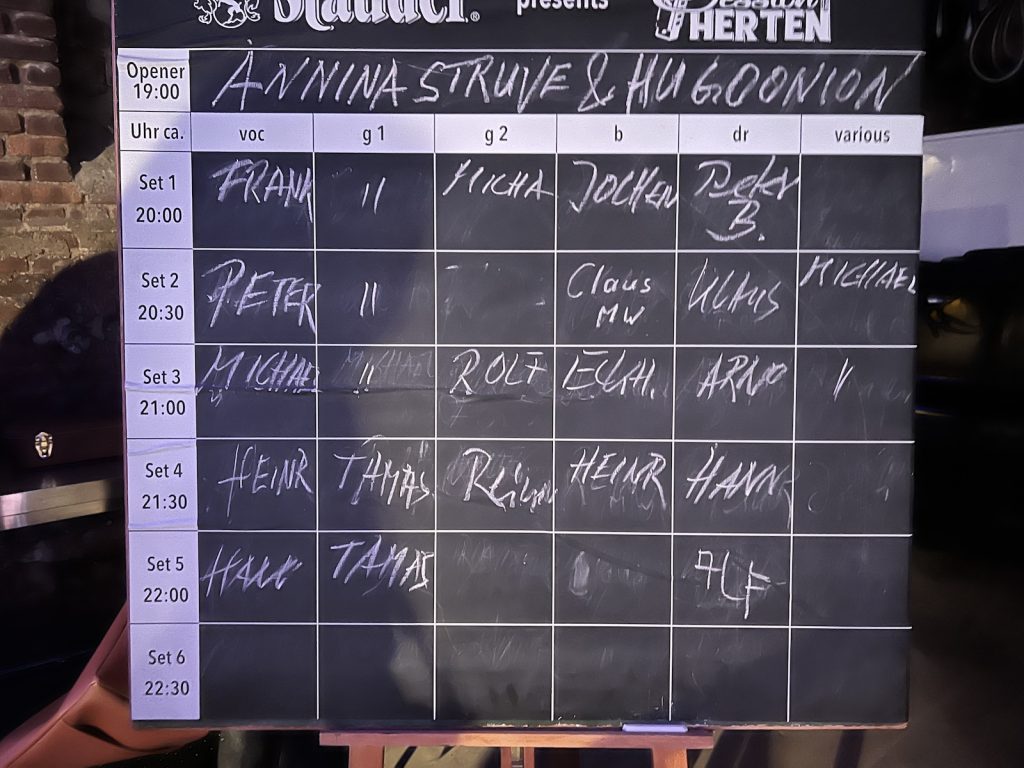 Stauder® presents Session HERTEN
Opener 19:00 ANNINA STRUVE & HUGOONION
Uhr ca. voc g 1 g 2 b dr various
Set 1 20:00 FRANK " MICHA JOCHEN Peter B.
Set 2 20:30 PETER " Claus MW KLAUS MICHAEL
Set 3 21:00 MICHAEL " ROLF ARNO
Set 4 21:30 HEINR TAMAS HEINR HANN
Set 5 22:00 TAMAS
Set 6 22:30